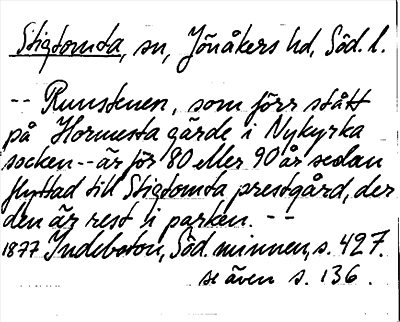 Stigtomta, sn, Jönåkers hd, Söd. l.
-- Runstenen, som förr stått
på Hormesta gärde i Nykyrka
socken -- är för 80 eller 90 år sedan
flyttad till Stigtomta prestgård, der
den är rest i parken. --
1877 Indebetou, Söd. minnen, s. 427.
se även s. 136.